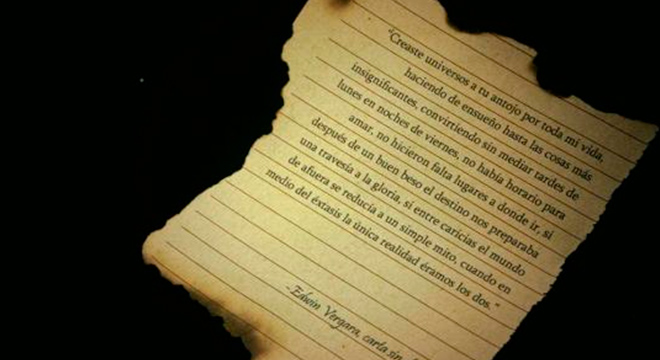 "Creaste universos a tu antojo por toda mi vida,
haciendo de ensueño hasta las cosas más
insignificantes, convirtiendo sin mediar tardes de
lunes en noches de viernes, no había horario para
amar, no hicieron falta lugares a donde ir, si
después de un buen beso el destino nos preparaba
una travesía a la gloria, si entre caricias el mundo
de afuera se reducía a un simple mito, cuando en
medio del éxtasis la única realidad éramos los dos."
-Edwin Vergara, carta sin